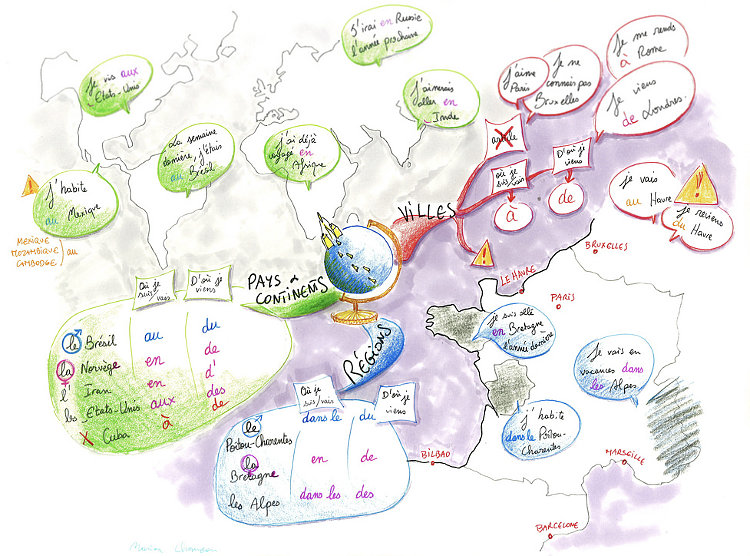 J'irai en Russie
l'année prochaine
Je vis aux
Etats-Unis
La semaine
dernière, j'étais
au Brésil
J'ai déjà
voyagé en
Afrique
J'aimerais
aller en
Inde
J'aime
Paris
Je ne
connais pas
Bruxelles
Je me rends
à Rome
Je viens
de Londres.
article
où je
suis/vais
D'où je
viens
à
de
je vais
au Havre
je reviens
du Havre
J'habite
au Mexique
MEXIQUE
MOZAMBIQUE
CAMBODGE
au
VILLES
PAYS &
CONTINENTS
RÉGIONS
Où je
suis/vais
D'où je
viens
le Brésil au du
la Norvège en de
l' Iran en d'
les Etats-Unis aux des
X Cuba à de
Où je
suis/vais
D'où je
viens
le
Poitou-Charentes dans le du
la
Bretagne en de
les Alpes dans les des
BRUXELLES
LE HAVRE
PARIS
je suis allé
en Bretagne
l'année dernière
Je vais en
vacances dans
les Alpes
J'habite
dans le Poitou-
Charentes
BILBAO
MARSEILLE
BARCELONE